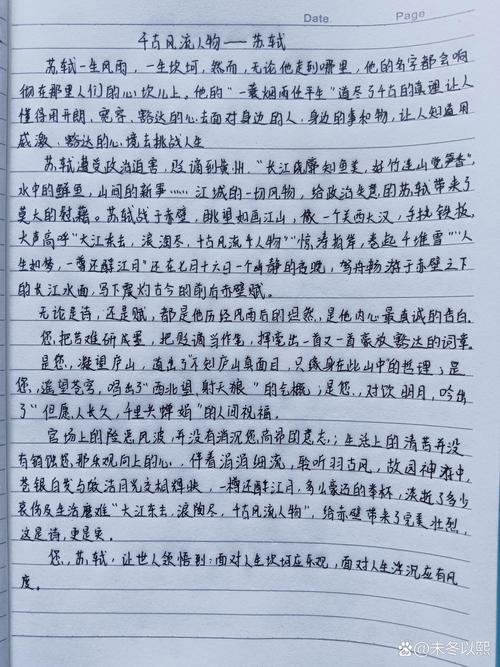 Date
Page
千古风流人物——苏轼
苏轼一生风雨，一生坎坷，然而，无论他走到哪里，他的名字都会响
彻在那里人们的心坎儿上。他的"一蓑烟雨任平生"道尽了千古的真理让人
懂得用开朗、宽容、豁达的心去面对身边的人，身边的事和物，让人知道用
感激、豁达的心境去挑战人生
苏轼遭受政治迫害，贬谪到黄州，"长江绕郭知鱼美，好竹连山觉笋香"，
水中的鲜鱼，山间的新笋……江城的一切风物，给政治失意的苏轼带来了
莫大的慰藉。苏轼战于赤壁，眺望如画江山，像一个关西大汉，手执铁板，
大声高呼"大江东去，浪淘尽，千古风流人物""惊涛拍岸，卷起千堆雪""人
生如梦，一尊还酹江月"还在七月十六日一个幽静的夜晚，驾舟畅游于赤壁之下
的长江水面，写下震烁古今的前后赤壁赋。
无论是诗，还是赋，都是他历经风雨后的坦然，是他内心最真诚的告白
您，把苦难研成墨，把贬谪当作笔，挥毫出一首又一首豪放豁达的词章。
是您，凝望庐山，道出了"不知庐山真面目，只缘身在此山中"的哲理；是
您，遥望苍穹，唱出了"西北望，射天狼"的气概；是您，对饮明月，吟出
了"但愿人长久，千里共婵娟"的人间祝福。
官场上的险恶风波，并没有消沉您高昂的意志；生活上的清苦并没
有销蚀您那乐观向上的心，伴着涓涓细流，聆听羽古风，故园神游中，
苍银白发与皎洁月光交相辉映，一樽还酹江月，多少豪迈的举杯，淡逝了多少
哀伤及生活磨难"大江东去，浪淘尽，千古风流人物"，给赤壁带来了完美壮烈，
这是诗，更是史。
您，苏轼，让世人领悟到：面对人生坎坷应乐观，面对人生浮沉应有风
度。
百家号/未冬以熙